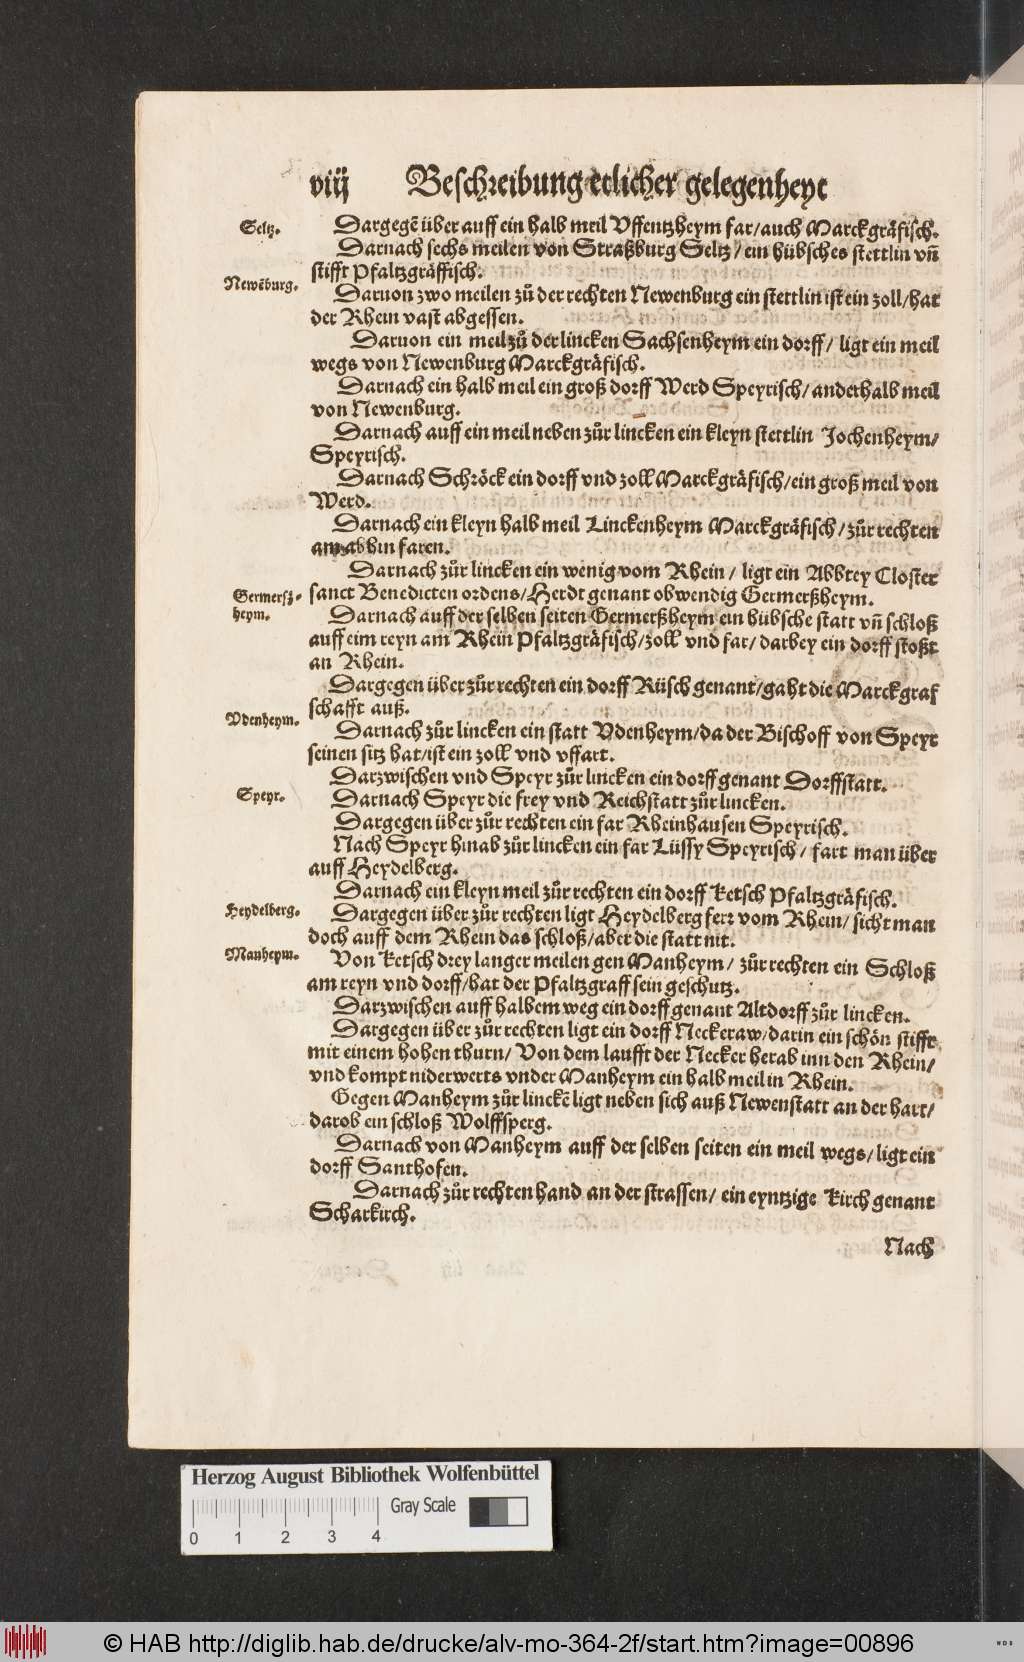 viij Beschreibung etlicher gelegenheyt
Seltz.
Dargegē über auff ein halb meil Vffentzheym far/auch Marckgräfisch.
Darnach sechs meilen von Straßburg Seltz/ein hübsches stettlin vñ
stifft Pfaltzgräffisch.
Newēburg.
Daruon zwo meilen zů der rechten Newenburg ein stettlin ist ein zoll/hat
der Rhein vast abgessen.
Daruon ein meil zů der lincken Sachsenheym ein dorff/ ligt ein meil
wegs von Newenburg Marckgräfisch.
Darnach ein halb meil ein groß dorff Werd Speyrisch/anderhalb meil
von Newenburg.
Darnach auff ein meil neben zůr lincken ein kleyn stettlin Jochenheym/
Speyrisch.
Darnach Schröck ein dorff vnd zoll Marckgräfisch/ein groß meil von
Werd.
Darnach ein kleyn halb meil Linckenheym Marckgräfisch/zůr rechten
am abhin faren.
Darnach zůr lincken ein wenig vom Rhein/ ligt ein Abbtey Closter
sanct Benedicten ordens/Herdt genant obwendig Germerßheym.
Germersz-
heym.
Darnach auff der selben seiten Germerßheym ein hübsche statt vñ schloß
auff eim reyn am Rhein Pfaltzgräfisch/zoll vnd far/darbey ein dorff stoßt
an Rhein.
Dargegen über zůr rechten ein dorff Rüsch genant/gaht die Marckgraf
schafft auß.
Vdenheym.
Darnach zůr lincken ein statt Vdenheym/da der Bischoff von Speyr
seinen sitz hat/ist ein zoll vnd vffart.
Darzwischen vnd Speyr zůr lincken ein dorff genant Dorffstatt.
Speyr.
Darnach Speyr die frey vnd Reichstatt zůr lincken.
Dargegen über zůr rechten ein far Rheinhausen Speyrisch.
Nach Speyr hinab zůr lincken ein far Lüssy Speyrisch/ fart man über
auff Heydelberg.
Darnach ein kleyn meil zůr rechten ein dorff Ketsch Pfaltzgräfisch.
Heydelberg.
Dargegen über zůr rechten ligt Heydelberg ferr vom Rhein/sicht man
doch auff dem Rhein das schloß/aber die statt nit.
Manheym.
Von Ketsch drey langer meilen gen Manheym/ zůr rechten ein Schloß
am reyn vnd dorff/hat der Pfaltzgraff sein geschutz.
Darzwischen auff halbem weg ein dorff genant Altdorff zůr lincken.
Dargegen über zůr rechten ligt ein dorff Neckeraw/darin ein schön stifft
mit einem hohen thurn/ Von dem laufft der Necker herab inn den Rhein/
vnd kompt niderwerts vnder Manheym ein halb meil in Rhein.
Gegen Manheym zůr linckē ligt neben sich auß Newenstatt an der hart/
darob ein schloß Wolffsperg.
Darnach von Manheym auff der selben seiten ein meil wegs/ligt ein
dorff Santhofen.
Darnach zůr rechten hand an der strassen/ ein eyntzige Kirch genant
Scharkirch.
Nach
Herzog August Bibliothek Wolfenbüttel
Gray Scale
0 1 2 3 4
© HAB http://diglib.hab.de/drucke/alv-mo-364-2f/start.htm?image=00896